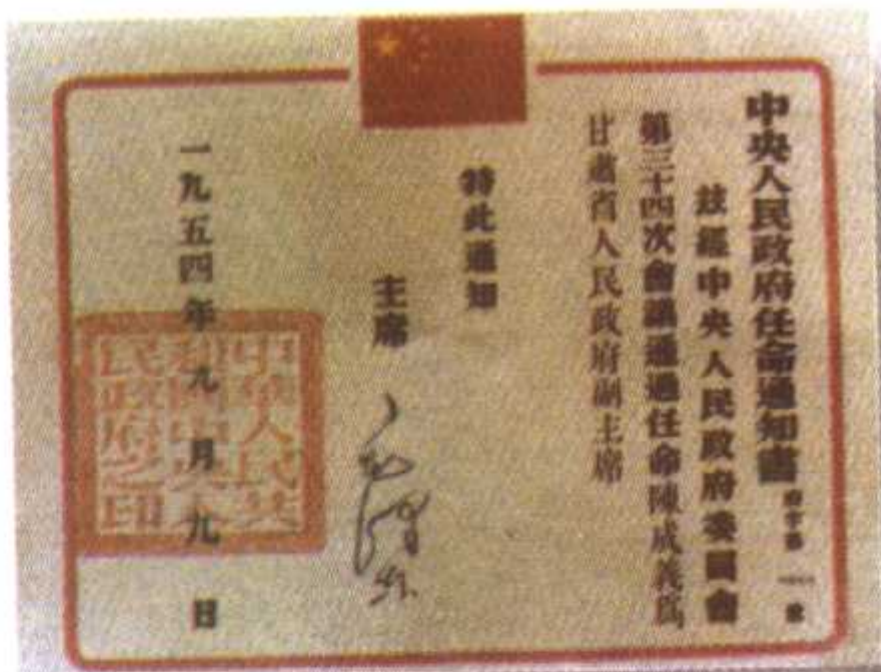 中央人民政府任命通知書
茲經中央人民政府委員會
第三十四次會議通過任命陳成義爲
甘肅省人民政府副主席
特此通知
主席 毛澤东
一九五四年九月九日
中華人民共
和國中央人
民政府之印